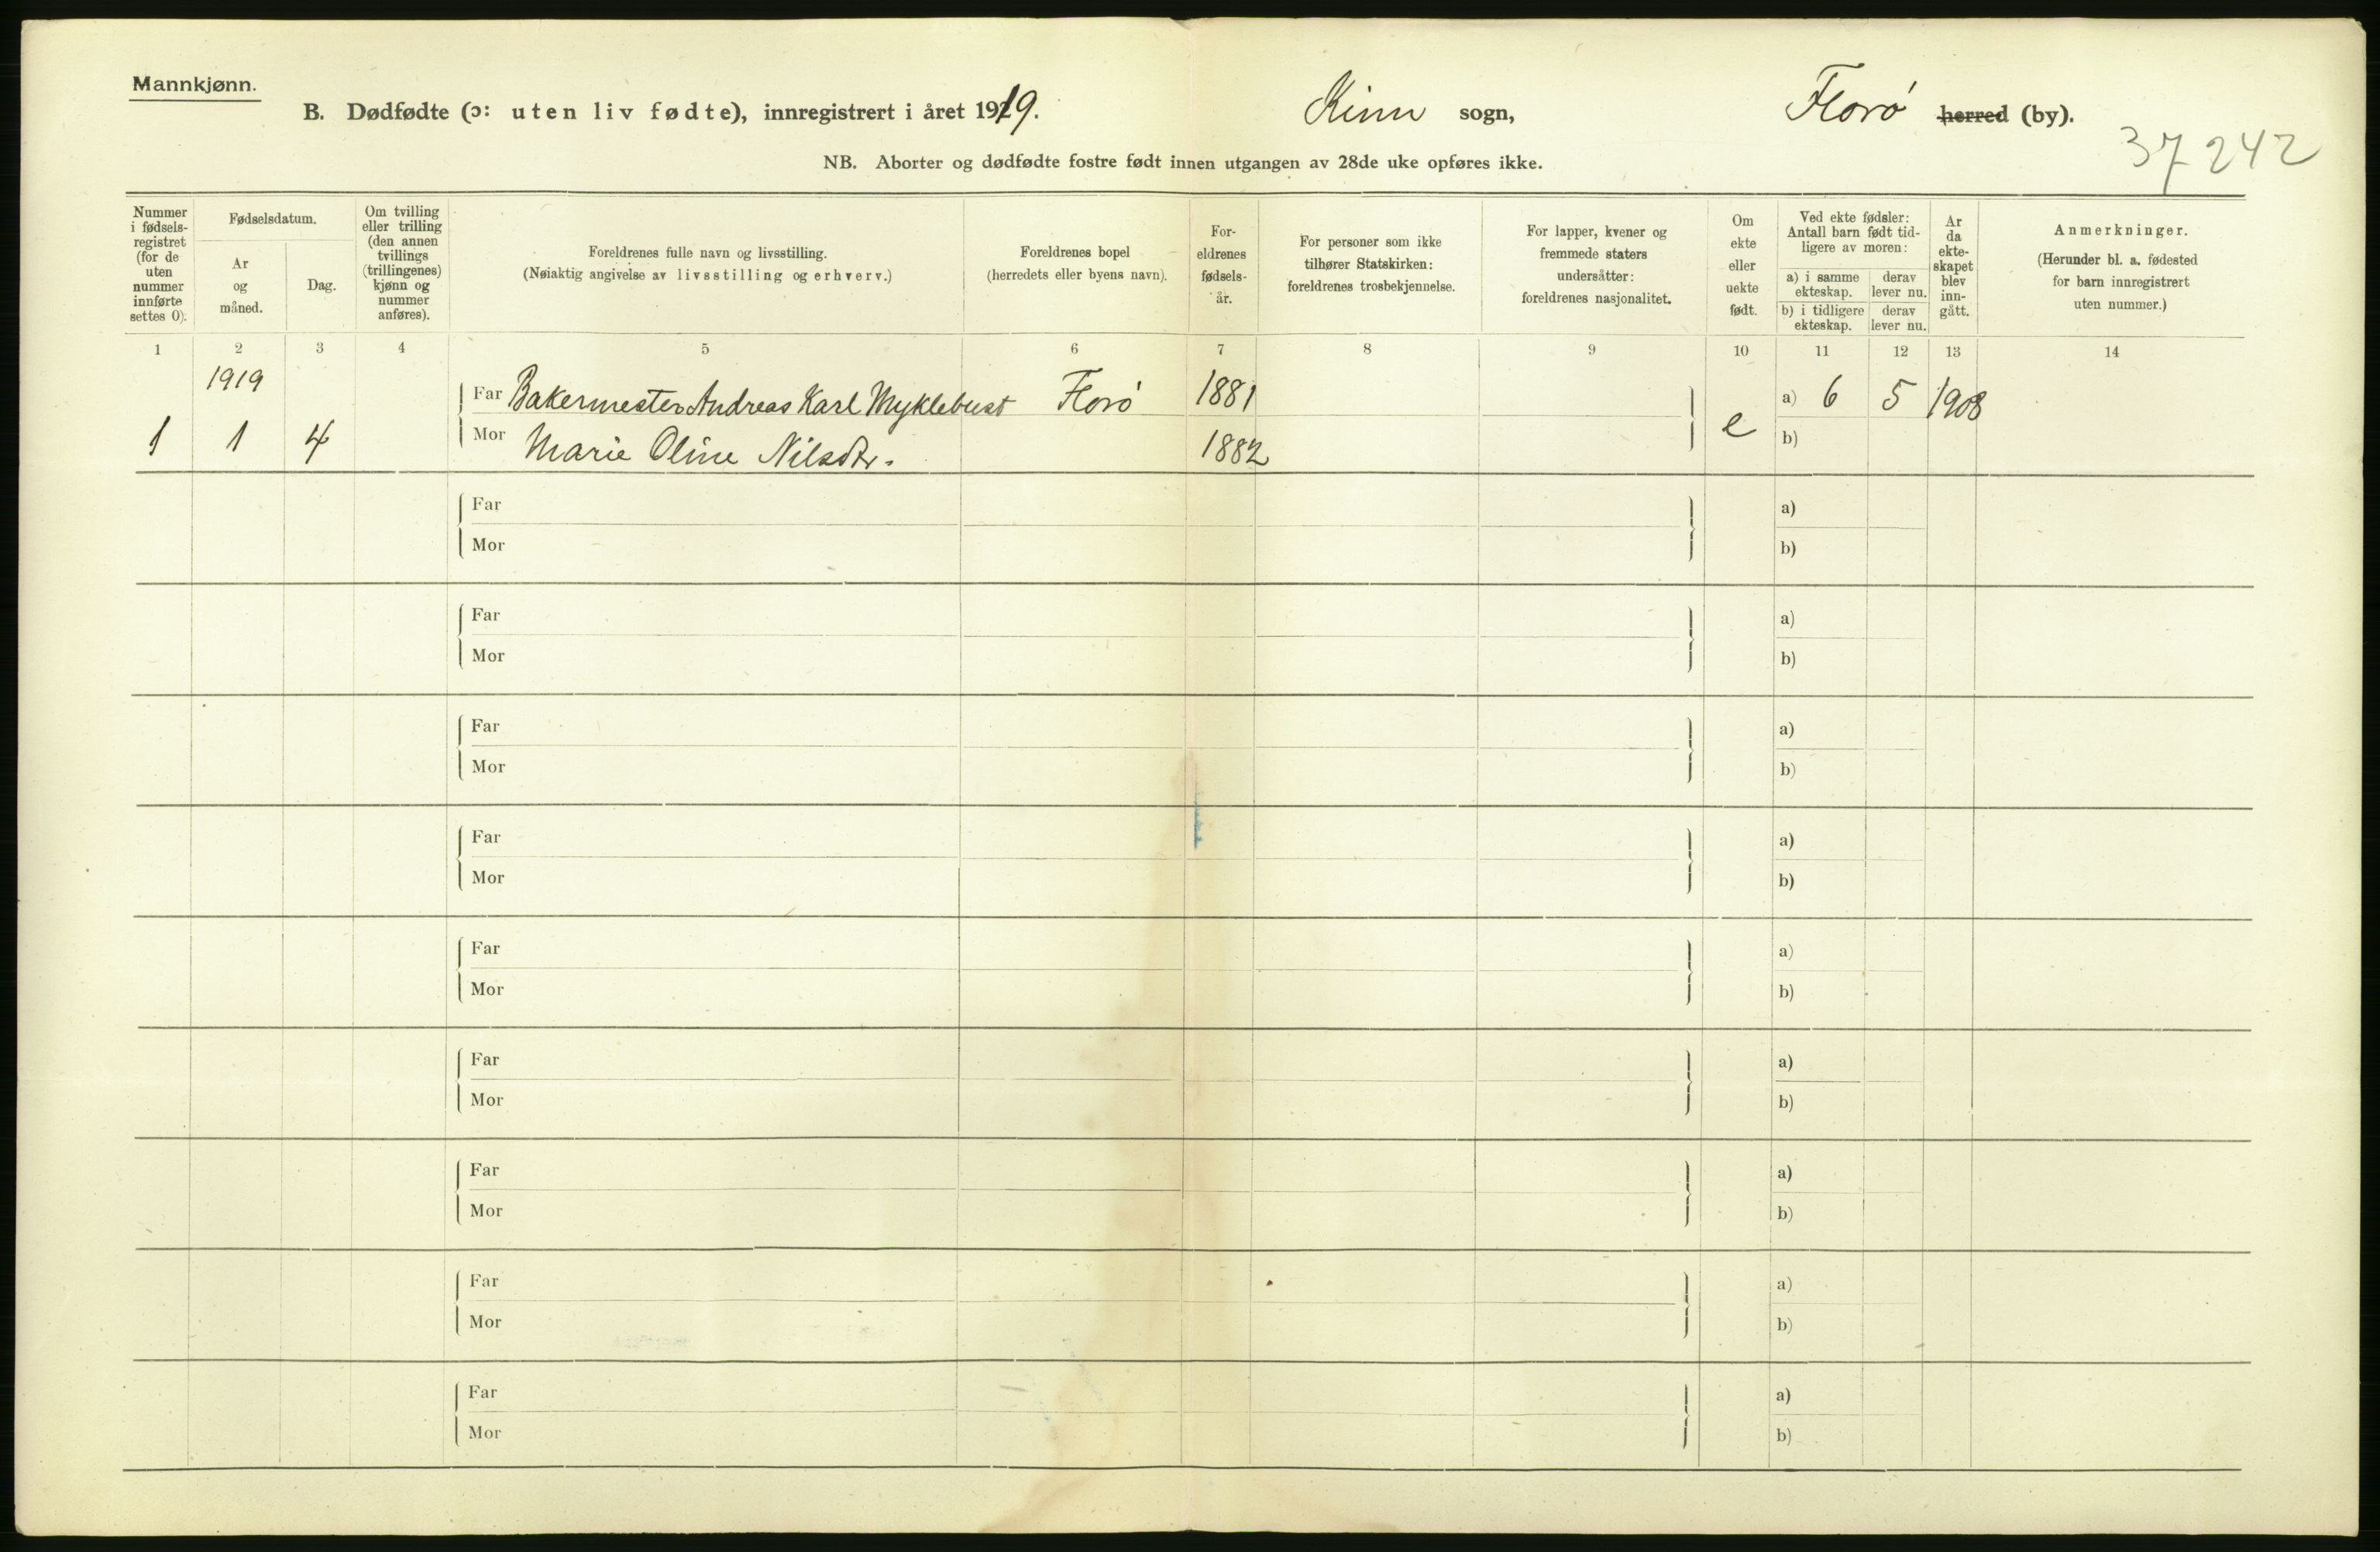 Mannkjønn.
B. Dødfødte (ɔ: uten liv fødte), innregistrert i året 1919. Kinn sogn, Florø herred (by).
37 242
NB. Aborter og dødfødte fostre født innen utgangen av 28de uke opføres ikke.
Nummer
i fødsels-
registret
(for de
uten
nummer
innførte
settes 0).
Fødselsdatum.
Ar
og
måned.
Dag.
Om tvilling
eller trilling
(den annen
tvillings
(trillingenes)
kjønn og
nummer
anføres).
Foreldrenes fulle navn og livsstilling.
(Nøiaktig angivelse av livsstilling og erhverv.)
Foreldrenes bopel
(herredets eller byens navn).
For-
eldrenes
fødsels-
år.
For personer som ikke
tilhører Statskirken:
foreldrenes trosbekjennelse.
For lapper, kvener og
fremmede staters
undersåtter:
foreldrenes nasjonalitet.
Om
ekte
eller
uekte
født.
Ved ekte fødsler:
Antall barn født tid-
ligere av moren:
a) i samme
ekteskap.
derav
lever nu.
b) i tidligere
ekteskap.
derav
lever nu.
Ar
da
ekte-
skapet
blev
inn-
gått.
Anmerkninger.
(Herunder bl. a. fødested
for barn innregistrert
uten nummer.)
1 2 3 4 5 6 7 8 9 10 11 12 13 14
1919
Far Bakermester Andreas Karl Myklebust Florø 1881 a) 6 5 1908
1 1 4 Mor Marie Oline Nilsdtr. 1882 e b)
Far a)
Mor b)
Far a)
Mor b)
Far a)
Mor b)
Far a)
Mor b)
Far a)
Mor b)
Far a)
Mor b)
Far a)
Mor b)
Far a)
Mor b)
Far a)
Mor b)